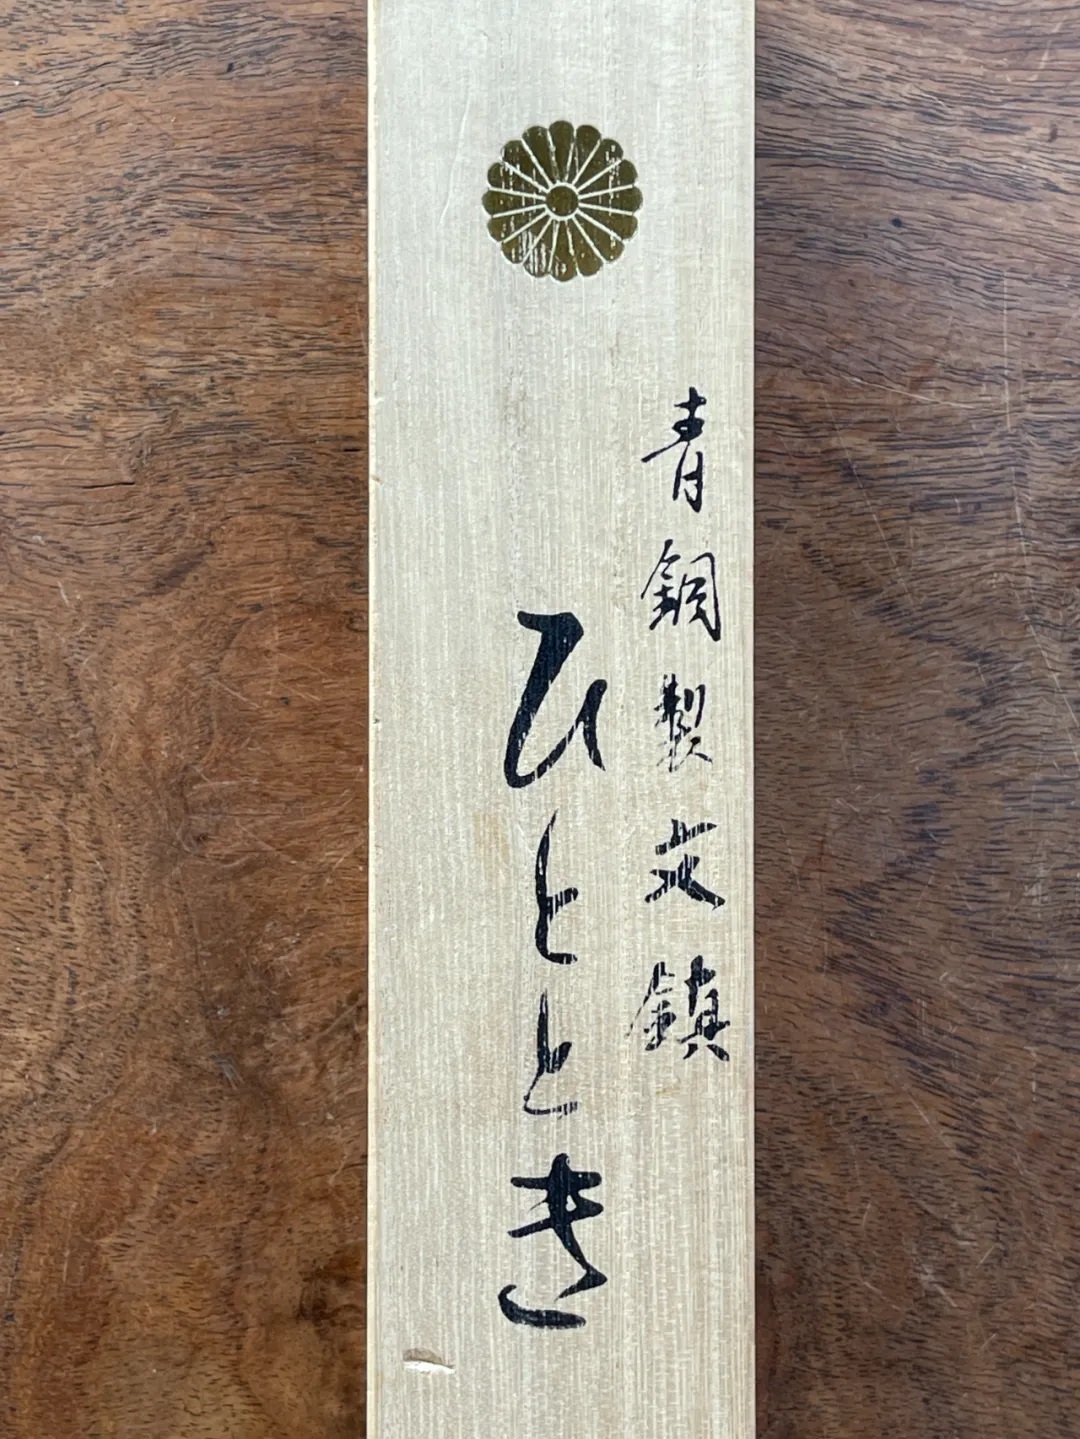 青銅製文鎮
ひととき